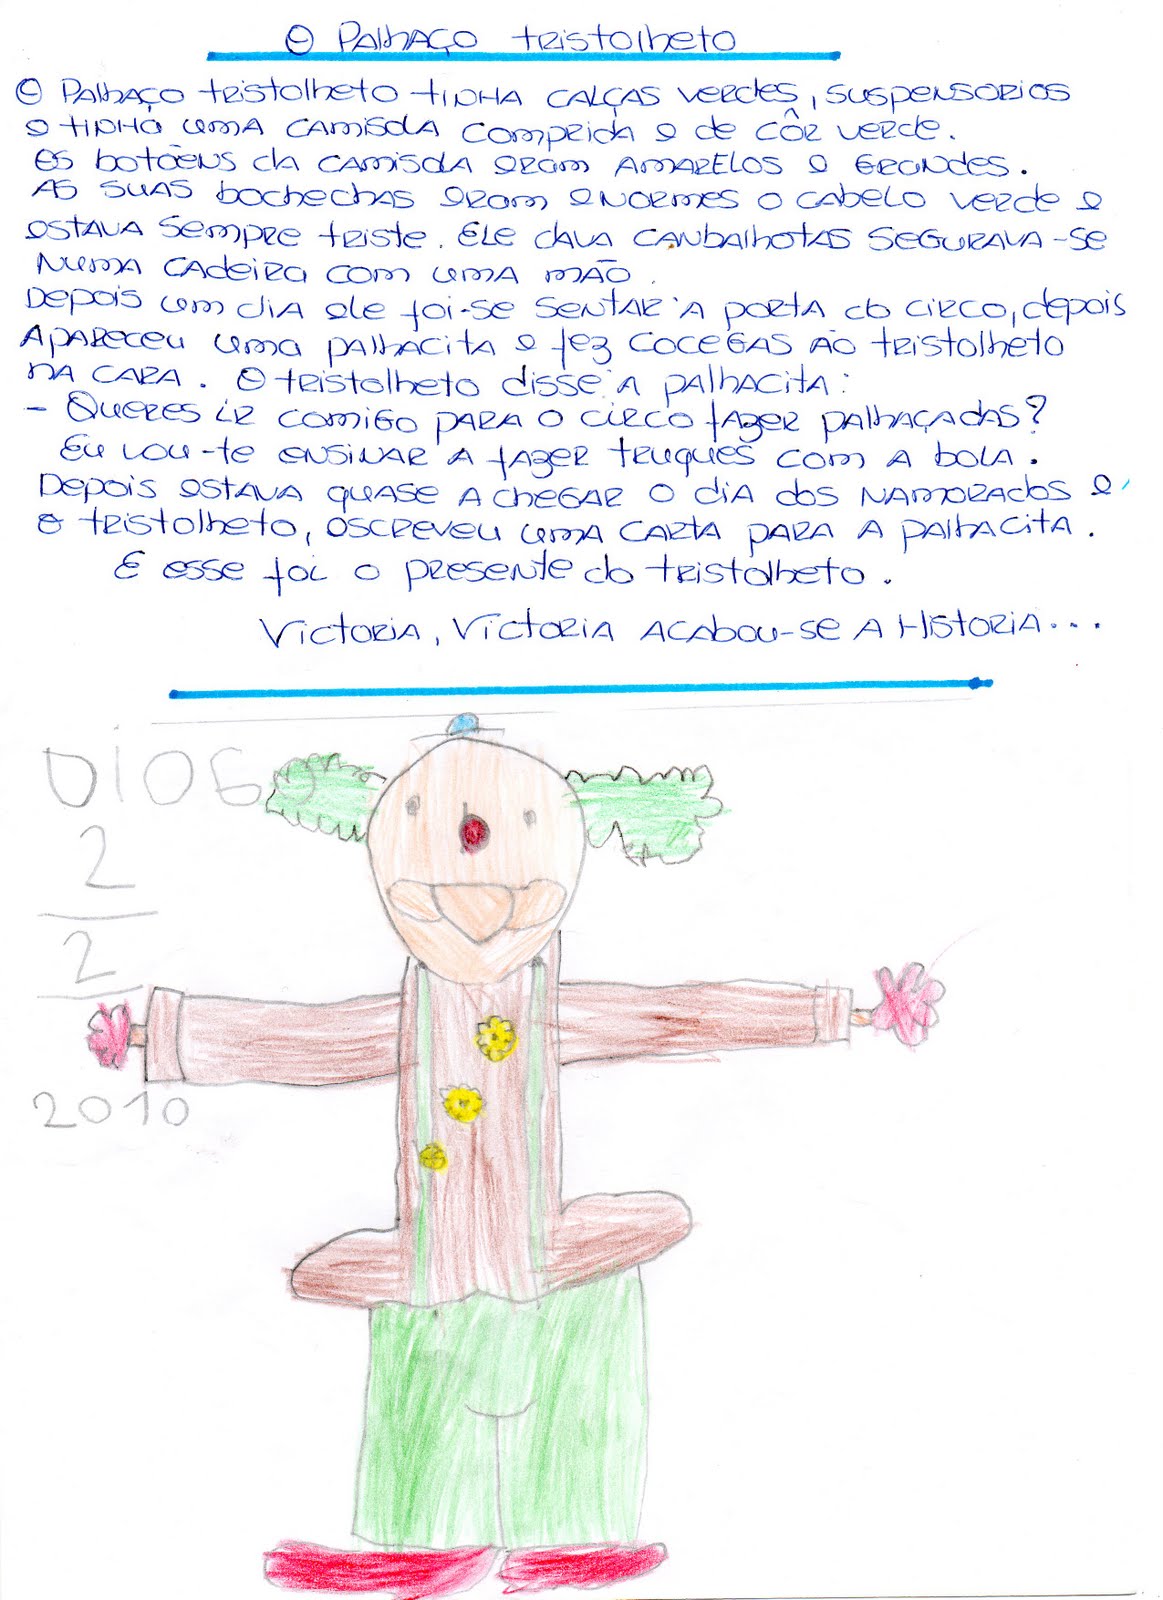 O Palhaço tristolheto
O Palhaço tristolheto tinha calças verdes, suspensorios
e tinha uma camisola comprida e de côr verde.
Os botõens da camisola eram amarelos e grandes.
As suas bochechas eram enormes o cabelo verde e
estava sempre triste. Ele dava canbalhotas segurava-se
numa cadeira com uma mão.
Depois um dia ele foi-se sentar à porta do circo, depois
Apareceu uma palhacita e fez cocegas ao tristolheto
na cara. O tristolheto disse à palhacita:
- Queres ir comigo para o circo fazer palhaçadas?
Eu vou-te ensinar a fazer truques com a bola.
Depois estava quase a chegar o dia dos namorados e
o tristolheto, escreveu uma carta para a palhacita.
E esse foi o presente do tristolheto.
Victoria, Victoria acabou-se a Historia...
DIOGO
2
2
2010